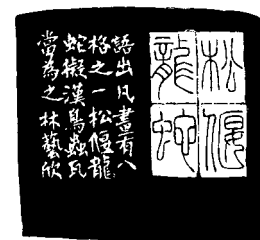 松偃
龍蛇
語出凡畫有八
格之一松偃龍
蛇擬漢鳥蟲瓦
當為之林藝欣